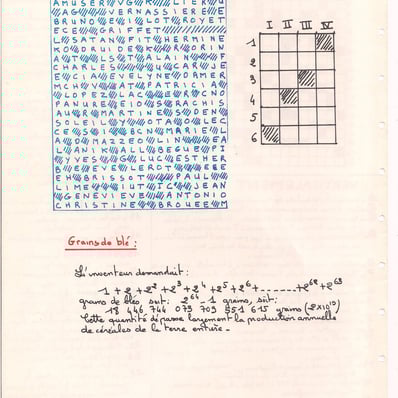 AMUSER VG K LIER U
AG VERNASSIERE E
BRUNO E I LOT ROYET
ECE GRIFFET
L SATAN FIT HERMINE
KO DRUIDE K R ORIN
A T LS T ALAIN F
CHARLES U CAR JE
E CIA EVELYNE ORMER
MCH V AT PATRICIA
LOPEZ LAC E R CNO
PANURE EID S RACHIS
AUR MARTINE S DEN
SOLEIL Y OTA O LEC
CE S I BCN MARIE L
A D MAZZEO LIN EA
L ANIK ALL BEGUE PI
YVES G LUC ESTHER
B E EVE LEROT E BE
EH BRISSOT PAUL
LIME IUT IC JEAN
GENEVIEVE ANTONIO
CHRISTINE BROUEE M
I II III IV
1
2
3
4
5
6
Grains de blé :
L'inventeur demandait :
1 + 2 + 2² + 2³ + 2⁴ + 2⁵ + 2⁶ + ....... + 2⁶² + 2⁶³
grains de blés soit : 2⁶⁴ - 1 grains, soit :
18 446 744 073 709 551 615 grains (2×10¹⁹)
Cette quantité dépasse largement la production annuelle
de céréales de la terre entière -